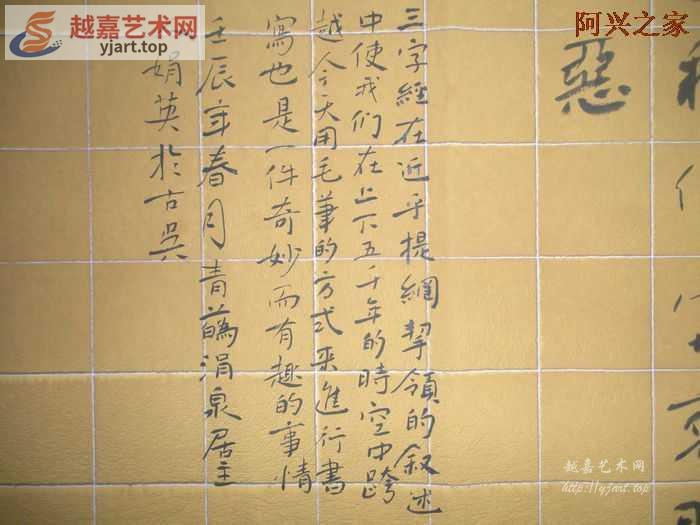 越嘉艺术网
yjart.top网
阿兴之家
惡
三字經在近乎提綱挈領的叙述
中使我们在上下五千年的時空中跨
越今天用毛筆的方式来進行書
寫也是一件奇妙而有趣的事情
壬辰年春月青藹涓泉居主
娟英於古吳
越嘉艺术网
http://yjart.top